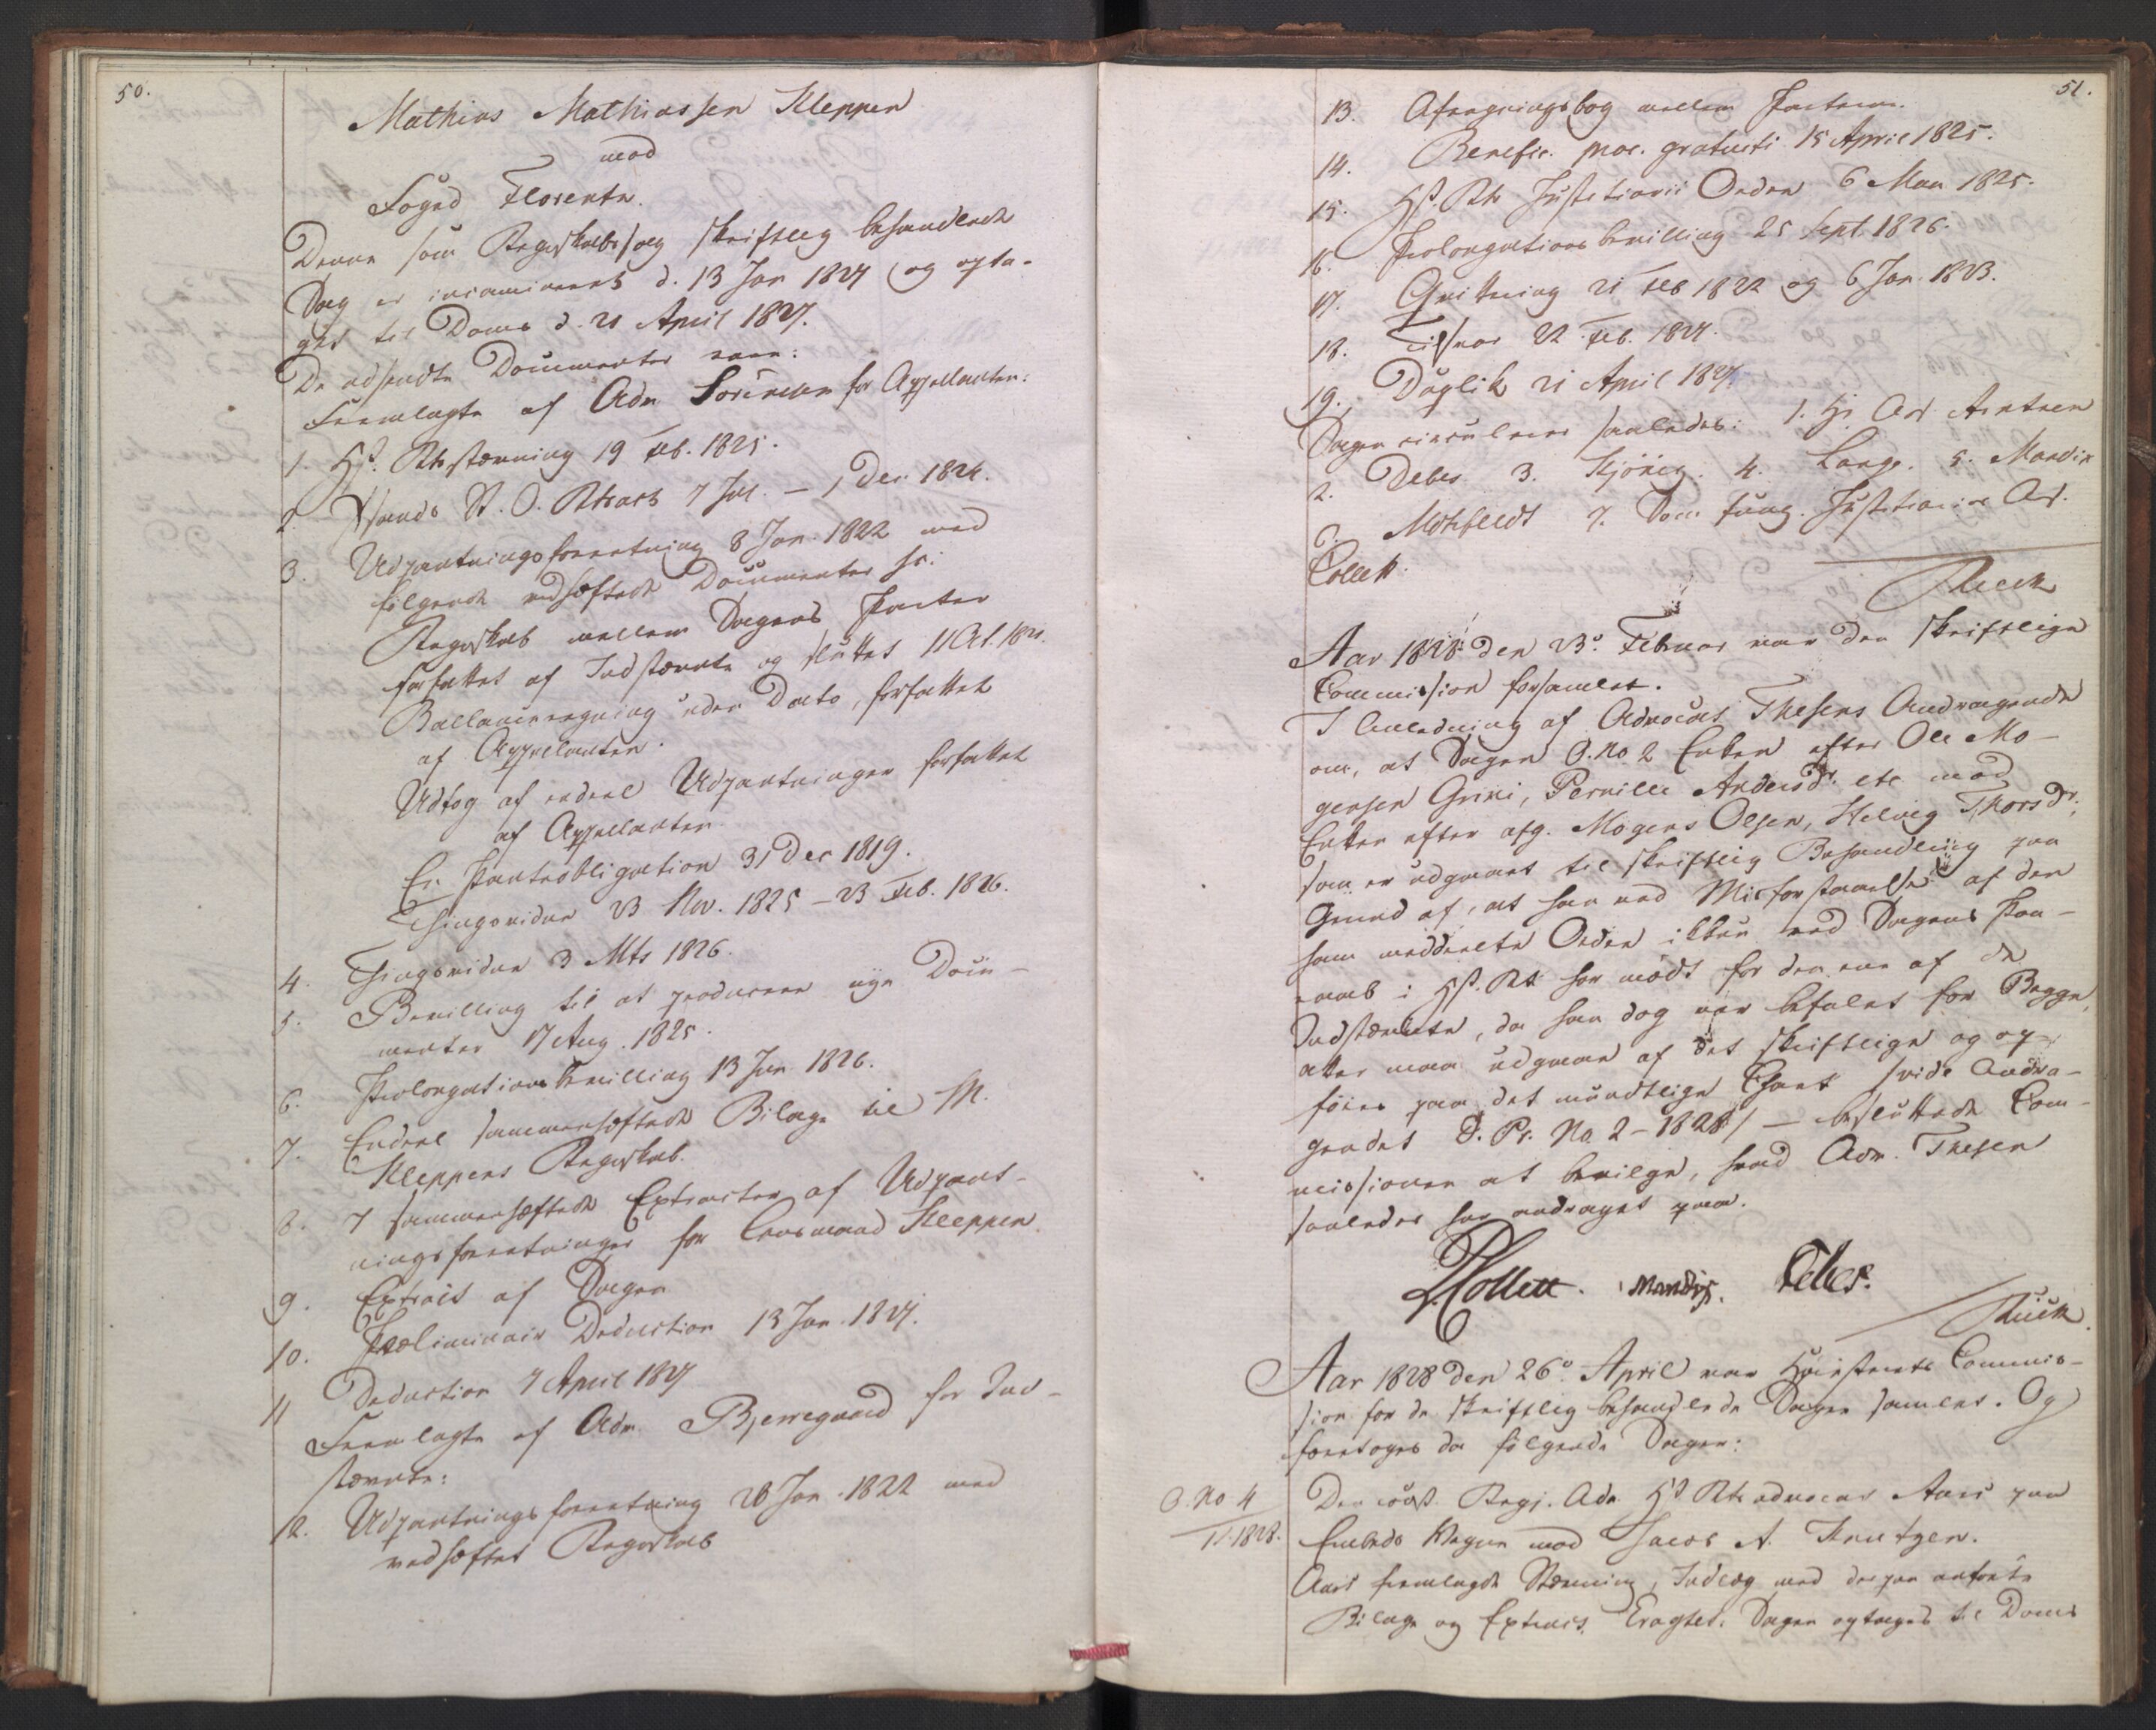 50.
Mathias Mathiassen Kleppen
mod
Foged Florentz.
Denne som Regnskabssag skriftlig behandlede
Sag er incamineret d. 13 Jan 1827 og opta-
get til Doms d. 21 April 1827.
De udsendte Documenter vare:
Fremlagte af Adv Sörensen for Appellanten:
1. Hst. Rts stævning 19 Feb. 1825.
2. Xsands St. O. Rtsact 7 Jul. – 1 Dec 1824.
3. Udpantningsforretning 8 Jan. 1822 med
følgende vedhæftede Documenter sc:
Regnskab mellem Sagens Parter
forfattet af Indstævnte og sluttet 11 Oct. 1821.
Ballanceregning uden Dato, forfattet
af Appellanten.
Udtog af endeel Udpantninger forfattet
af Appellanten
En Panteobligation 31 Dec 1819.
Thingsvidne 23 Nov. 1825 – 23 Feb. 1826.
4. Thingsvidne 3 Mts 1826.
5. Bevilling til at producere nye Docu-
menter 17 Aug. 1825.
6. Prolongations bevilling 13 Jan 1826.
7. Endeel sammenhæftede Bilage til M.
Kleppens Regnskab.
8. 7 sammenhæftede Extracter af Udpant-
ningsforretninger for Lensmand Kleppen
9. Extract af Sagen
10. Præliminair Deduction 13 Jan. 1827.
11 Deduction 7 April 1827
Fremlagte af Adv. Bjerregaard for Ind-
stævnte:
12. Udpantningsforretning 28 Jan. 1822 med
vedhæftet Regnskab
51.
13. Afregningsbog mellem Parterne.
14. Benefic. proc. gratuiti 15 April 1825.
15. Hst. Rts Justitiarii Orden 6 Mai 1825.
16. Prolongations bevilling 25 Sept. 1826.
17. Qvittering 21 Feb 1822 og 6 Jan. 1823.
18. Tilsvar 22 Feb. 1827.
19. Duplik 21 April 1827.
Sagen circulerer saaledes: 1. Hr. Ass.
2. Debes 3. Kjönig. 4. Lange. 5. Mandix
6. Motzfeldt 7. Som fung. Justitiarius Ass.
Collett.
Rieck
Aar 1828 den 23de Februar var den skriftlige
Commission forsamlet.
I Anledning af Advocat Thesens Andragende
om, at Sagen O. No 2 Enken efter Ole Mo-
gensen Grini, Pernille Andersdr. etc mod
Enken efter afg. Mogens Olsen, Helvig Thorsdr.,
som er udgaaet til skriftlig Behandling paa
Grund af, at han ved Misforstaaelse af den
ham meddeelte Orden ikkun ved Sagens Paa-
raab i Hst. Rt har mødt for den ene af de
Indstævnte, da han dog var befalet for Begge,
atter maa udgaae af det skriftlige og op-
føres paa det mundtlige Chart /: vide Andra-
gendet D. Pr. No. 2 – 1828 :/ – besluttede Com-
missionen at bevilge, hvad Adv. Thesen
saaledes har andraget paa.
J. Collett. Mandix. Debes.
Rieck.
Aar 1828 den 26de April var Høiesterets Commis-
sion for de skriftlig behandlede Sager samlet. Og
foretoges da følgende Sager:
O. No 4
1828.
Den const. Regj. Adv. Hst Rts advocat Aars paa
Embeds Vegne mod Jacob A. Knutzen.
Aars fremlagde Stævning, Indlæg med derpaa anførte
Bilage og Extract. Eragtet: Sagen optages til Doms